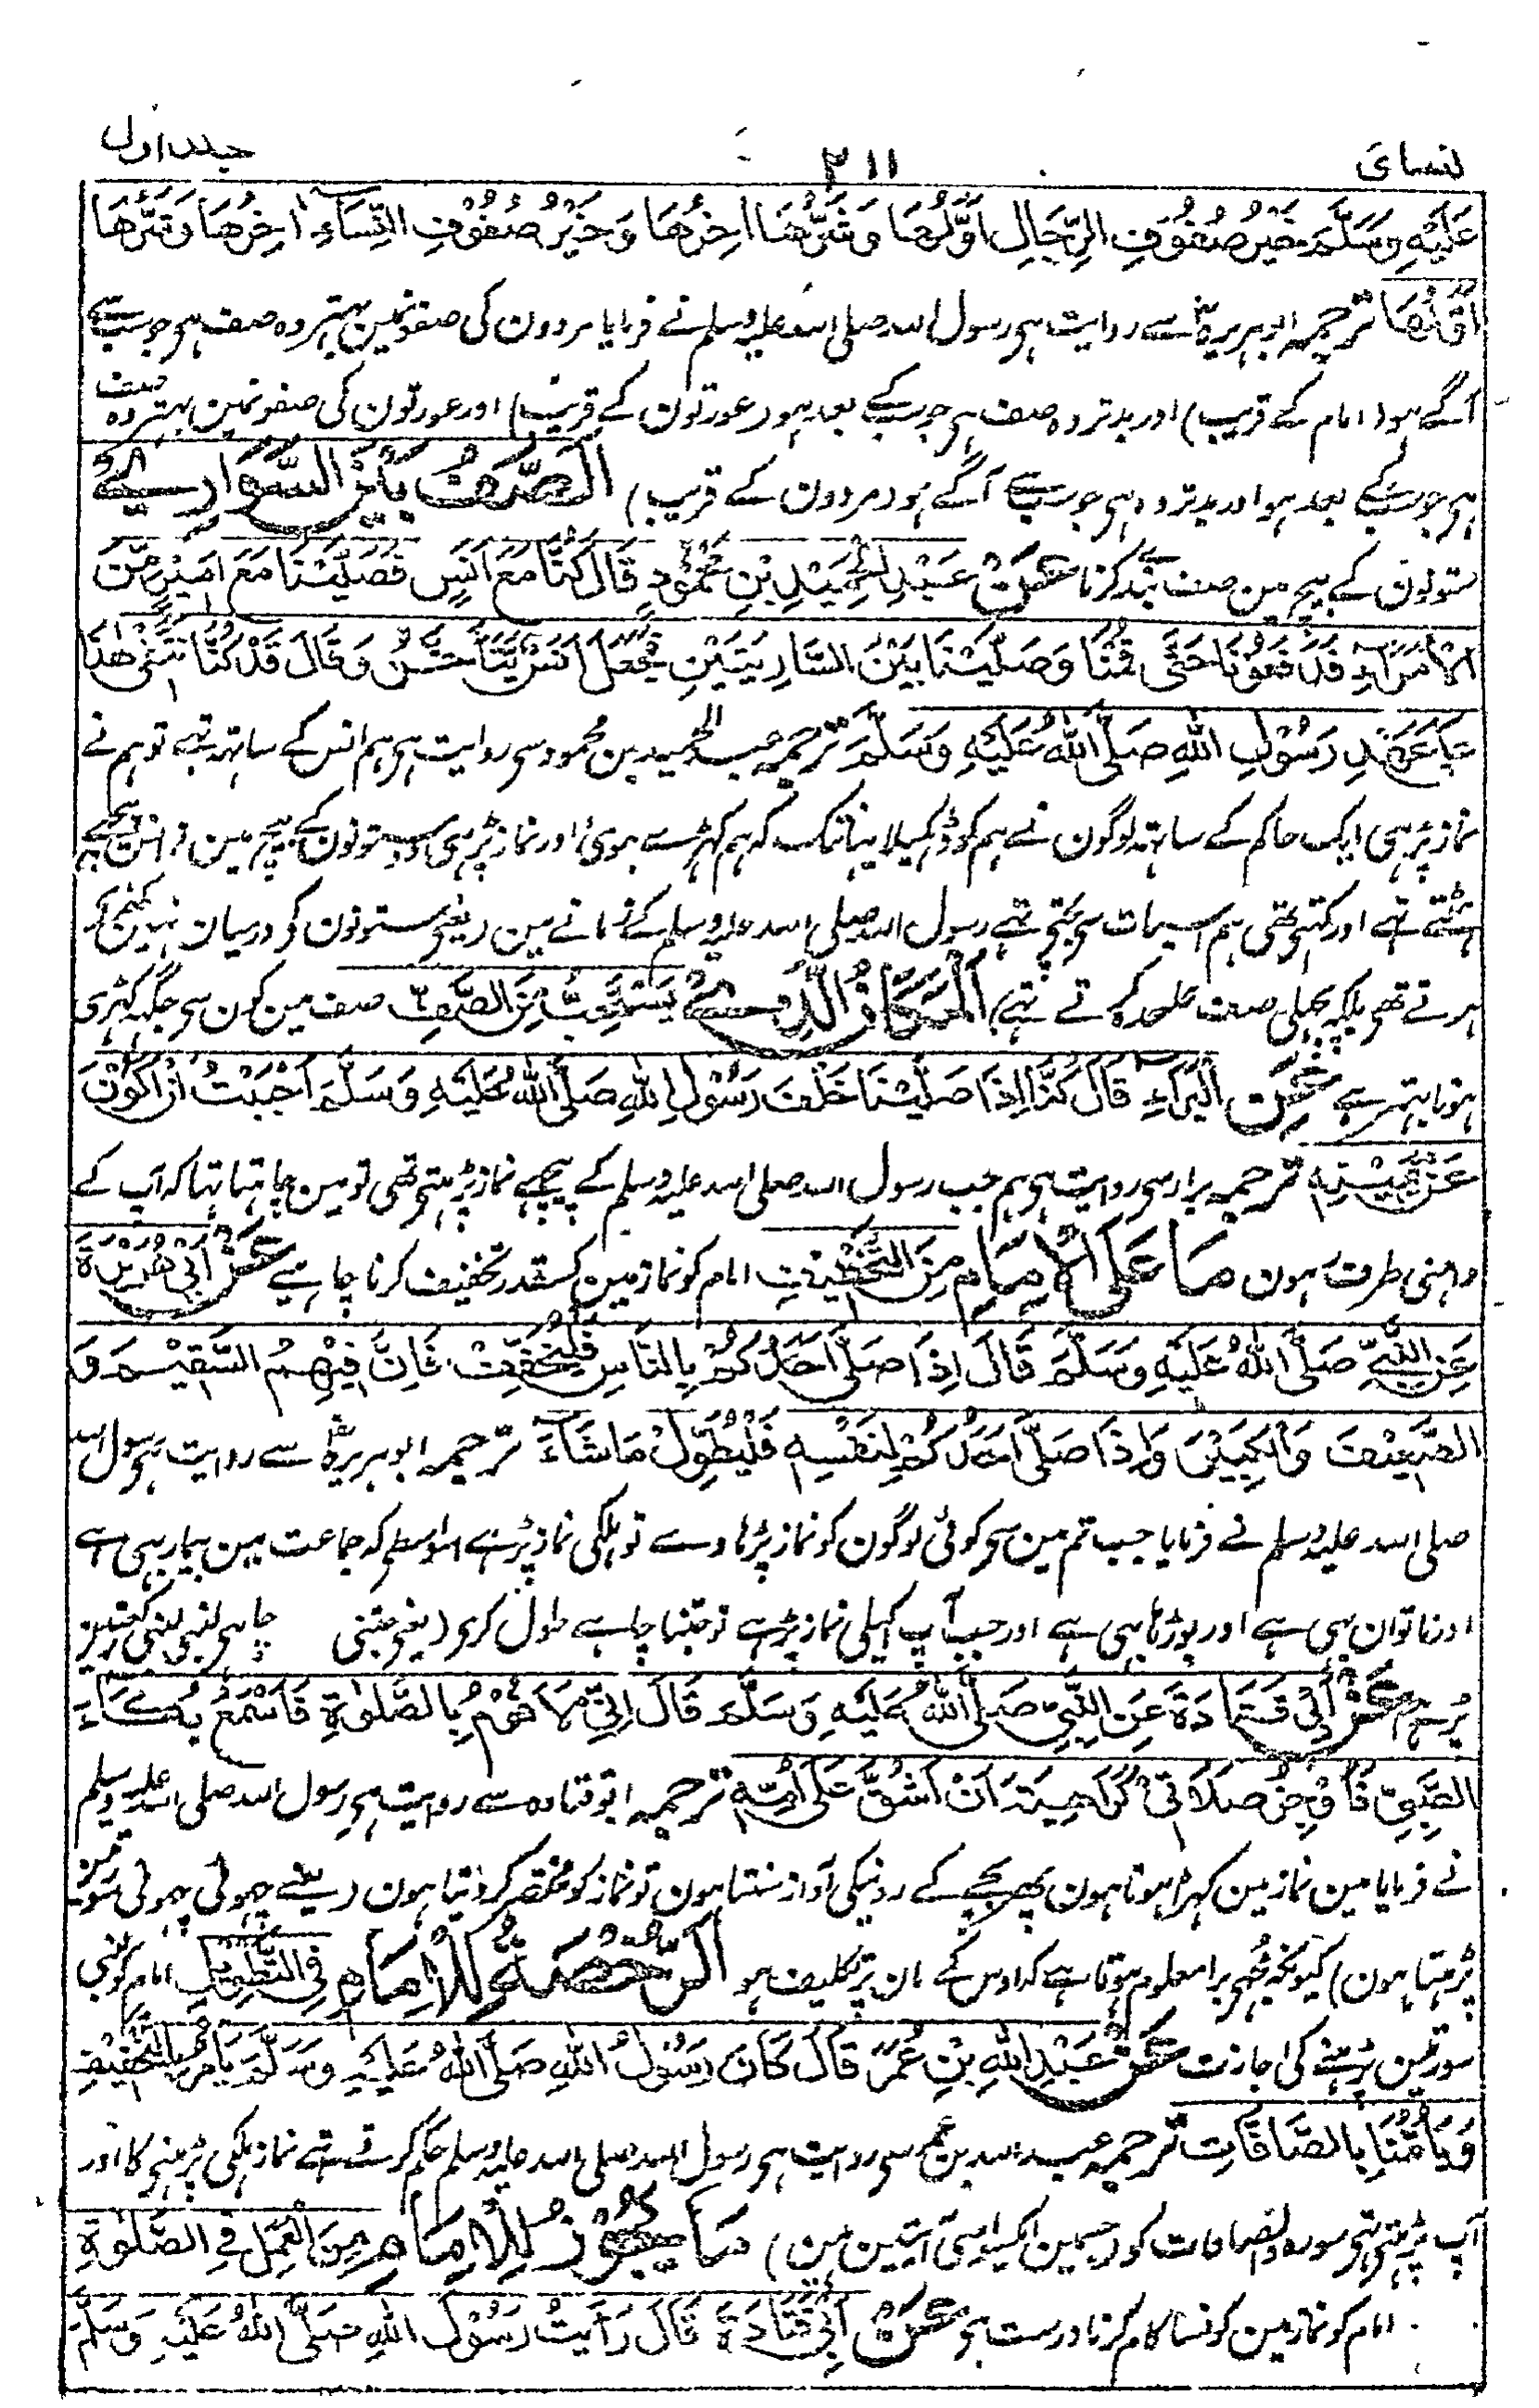 نسائی ۲۱۱ جلد اول
عَلَيْهِ وَسَلَّمَ خَيْرُ صُفُوْفِ الرِّجَالِ اَوَّلُهَا وَشَرُّهَا اٰخِرُهَا وَخَيْرُ صُفُوْفِ النِّسَاءِ اٰخِرُهَا وَشَرُّهَا
اَوَّلُهَا ترجمہ ابوہریرہؓ سے روایت ہی رسول اللہ صلی اللہ علیہ وسلم نے فرمایا مردون کی صفونمین بہتر وہ صف ہی جو سب سے
آگے ہو (امام کے قریب) اور بدتر وہ صف ہی جو سب کے بعد ہو (عورتون کے قریب) اور عورتون کی صفونمین بہتر وہ صف
ہی جو سب کے بعد ہو اور بدتر وہ ہی جو سب سے آگے ہو (مردون کے قریب) اَلصَّفُّ بَيْنَ السَّوَارِيْ
ستونون کے بیچ مین صف بند کرنا عَنْ عَبْدِ الْحَمِيْدِ بْنِ مَحْمُوْدٍ قَالَ كُنَّا مَعَ اَنَسٍ فَصَلَّيْنَا مَعَ اَمِيْرٍ مِّنَ
الْاُمَرَاءِ فَدَفَعُوْنَا حَتّٰى قُمْنَا وَصَلَّيْنَا بَيْنَ السَّارِيَتَيْنِ فَجَعَلَ اَنَسٌ يَّتَاَخَّرُ وَقَالَ قَدْ كُنَّا نَتَّقِيْ هٰذَا
عَلٰى عَهْدِ رَسُوْلِ اللّٰهِ صَلَّى اللّٰهُ عَلَيْهِ وَسَلَّمَ ترجمہ عبدالحمید بن محمود سی روایت ہی ہم انس کے ساتھ تھے تو ہم نے
نماز پڑہی ایک حاکم کے ساتھ لوگون نے ہم کو ڈہکیلا یہانتک کہ ہم کہڑے ہوئی اور نماز پڑہی دو ستونون کے بیچ مین تو انس پیچھے
ہٹتے تھے اور کہتی تھی ہم اس بات سی بچتی تھے رسول اللہ صلی اللہ علیہ وسلم کے زمانے مین (یعنی ستونون کو درمیان نہین کھڑے
ہوتے تھی بلکہ پچھلی صف علحدہ کرتے تھے) اَلْمَكَانُ الَّذِيْ يُسْتَحَبُّ مِنَ الصَّفِّ صف مین کون سی جگہ کہڑی
ہونا بہتر ہے عَنِ الْبَرَاءِ قَالَ كُنَّا اِذَا صَلَّيْنَا خَلْفَ رَسُوْلِ اللّٰهِ صَلَّى اللّٰهُ عَلَيْهِ وَسَلَّمَ اَحْبَبْتُ اَنْ اَكُوْنَ
عَنْ يَّمِيْنِهٖ ترجمہ براء سی روایت ہی ہم جب رسول اللہ صلی اللہ علیہ وسلم کے پیچھے نماز پڑہتی تھی تو مین چاہتا تہا کہ آپ کے
داہنی طرف ہون مَا عَلَى الْاِمَامِ مِنَ التَّخْفِيْفِ امام کو نماز مین کسقدر تخفیف کرنا چاہیے عَنْ اَبِيْ هُرَيْرَةَ
عَنِ النَّبِيِّ صَلَّى اللّٰهُ عَلَيْهِ وَسَلَّمَ قَالَ اِذَا صَلّٰى اَحَدُكُمْ بِالنَّاسِ فَلْيُخَفِّفْ فَاِنَّ فِيْهِمُ السَّقِيْمَ وَ
الضَّعِيْفَ وَالْكَبِيْرَ وَاِذَا صَلّٰى اَحَدُكُمْ لِنَفْسِهٖ فَلْيُطَوِّلْ مَا شَاءَ ترجمہ ابوہریرہؓ سے روایت ہی رسول اللہ
صلی اللہ علیہ وسلم نے فرمایا جب تم مین سی کوئی لوگون کو نماز پڑہاوے تو ہلکی نماز پڑہے اسواسطے کہ جماعت مین بیمار بہی ہے
اور ناتوان بہی ہے اور بوڑہا بہی ہے اور جب آپ اکیلی نماز پڑہے تو جتنا چاہے طول کری (یعنی جتنی چاہی لنبی لنبی
پڑہے) عَنْ اَبِيْ قَتَادَةَ عَنِ النَّبِيِّ صَلَّى اللّٰهُ عَلَيْهِ وَسَلَّمَ قَالَ اِنِّيْ لَاَقُوْمُ بِالصَّلٰوةِ فَاَسْمَعُ بُكَاءَ
الصَّبِيِّ فَاُوْجِزُ صَلَاتِيْ كَرَاهِيَةَ اَنْ اَشُقَّ عَلٰى اُمِّهٖ ترجمہ ابوقتادہ سے روایت ہی رسول اللہ صلی اللہ علیہ وسلم
نے فرمایا مین نماز مین کہڑا ہوتا ہون پہر بچے کے رونیکی آواز سنتا ہون تو نماز کو مختصر کردیتا ہون (یعنے چہوٹی چہوٹی سورتین
پڑہتا ہون) کیونکہ مجہی برا معلوم ہوتا ہے کہ اوس کے مان پر تکلیف ہو اَلرُّخْصَةُ لِلْاِمَامِ فِي التَّطْوِيْلِ امام کو لنبی
سورتین پڑہنے کی اجازت عَنْ عَبْدِ اللّٰهِ بْنِ عُمَرَ قَالَ كَانَ رَسُوْلُ اللّٰهِ صَلَّى اللّٰهُ عَلَيْهِ وَسَلَّمَ يَاْمُرُ بِالتَّخْفِيْفِ
وَيَؤُمُّنَا بِالصَّافَّاتِ ترجمہ عبداللہ بن عمر سی روایت ہی رسول اللہ صلی اللہ علیہ وسلم حکم کرتے تھے نماز ہلکی پڑہنی کا اور
آپ پڑہتی تھی سورہ والصافات کو (جسمین ایکسو بیاسی آیتین ہین) مَا يَجُوْزُ لِلْاِمَامِ مِنَ الْعَمَلِ فِي الصَّلٰوةِ
امام کو نماز مین کونسا کام کرنا درست ہی عَنْ اَبِيْ قَتَادَةَ قَالَ رَاَيْتُ رَسُوْلَ اللّٰهِ صَلَّى اللّٰهُ عَلَيْهِ وَسَلَّمَ